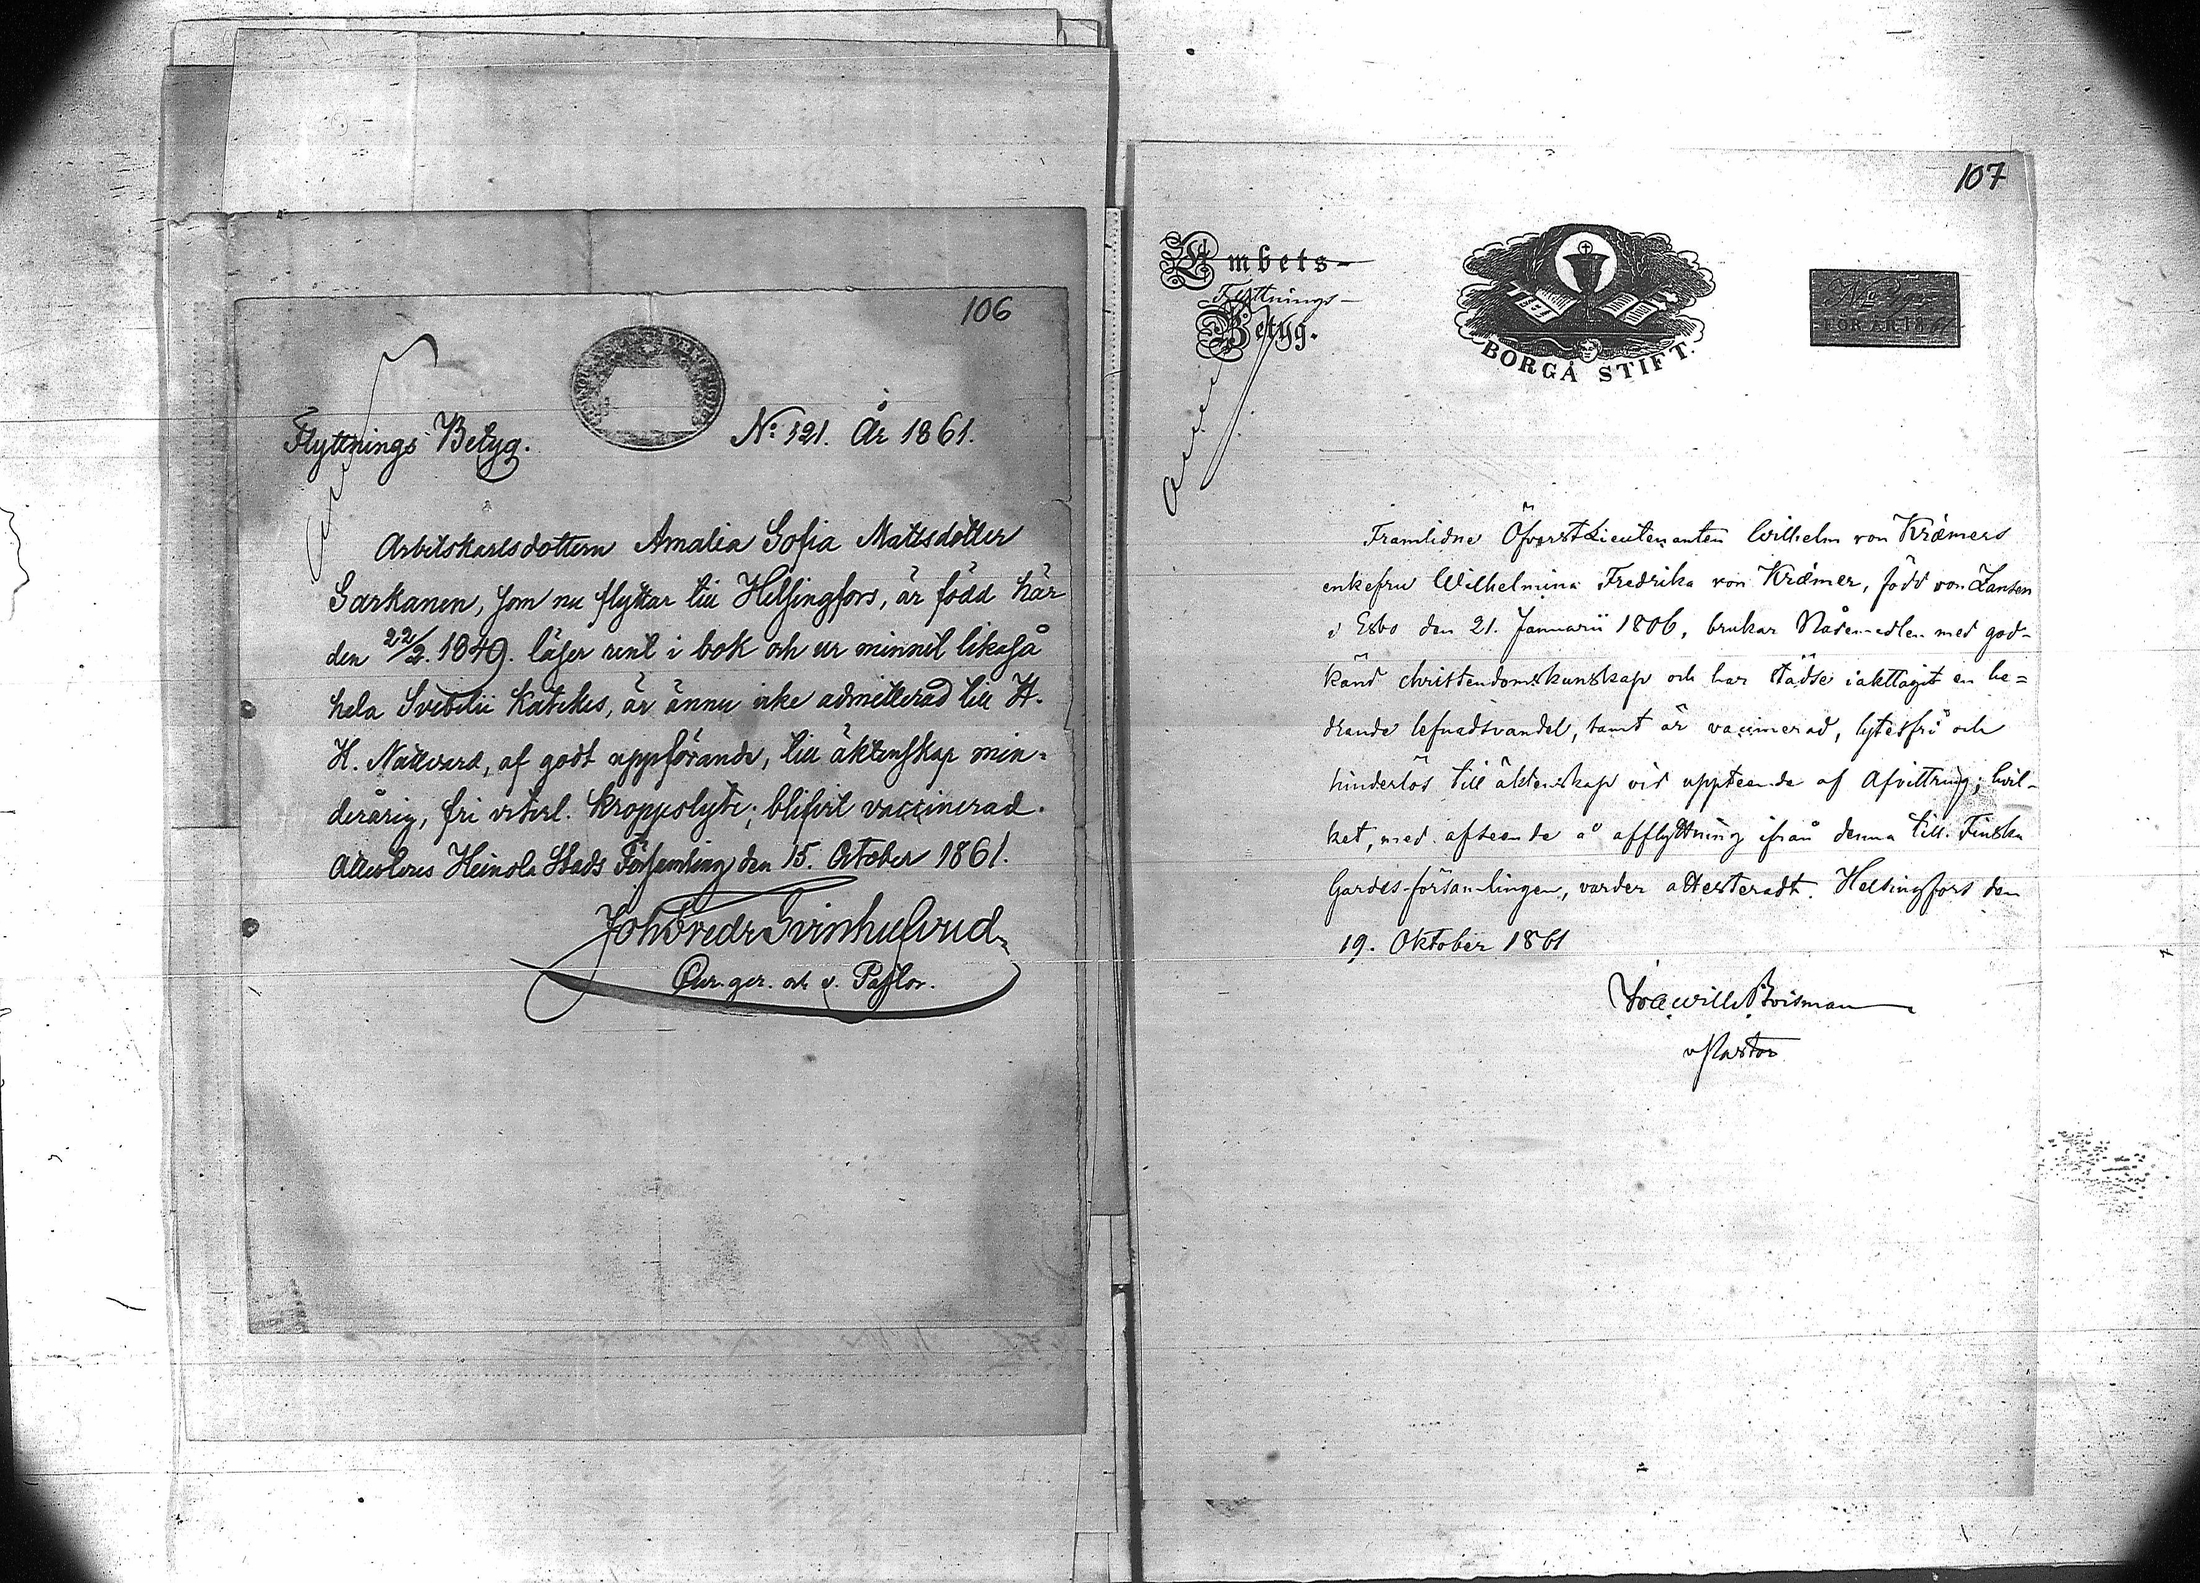 106
Flyttnings Betyg.
No: 121. År 1861.
Arbetskarlsdottern Amalia Sofia Mattsdotter
Sarkanen, som nu flyttar till Helsingfors, är född här
den 22/2. 1849. läser rent i bok och ur minnet likaså
hela Svebilii Katekes, är ännu icke admitterad till H.
H. Nattvard, af godt uppförande, till äktenskap min-
derårig, fri veterl. kroppslyte; blifvit vaccinerad.
Attesteras Heinola Stads Församling den 15. October 1861.
Joh Fredr Svinhufvud
Cur. ger. och v. Pastor.
107
Ambets-
Flyttnings-
Betyg.
BORGÅ STIFT.
No
FÖR ÅR 1861
Framlidne ÖfverstLieutenanten Wilhelm von Kræmers
enkefru Wilhelmina Fredrika von Kræmer, född von Zansen
i Esbo den 21. Januarii 1806, brukar Nådemedlen med god-
känd christendomskunskap och har städse iakttagit en he-
drande lefnadsvandel, samt är vaccinerad, lytesfri och
hinderlös till äktenskap vid uppteende af Afvittring; hvil-
ket, med afseende å afflyttning ifrån denna till Finska
Gardes-församlingen, varder attesteradt. Helsingfors den
19. Oktober 1861
Boisman
v Pastor